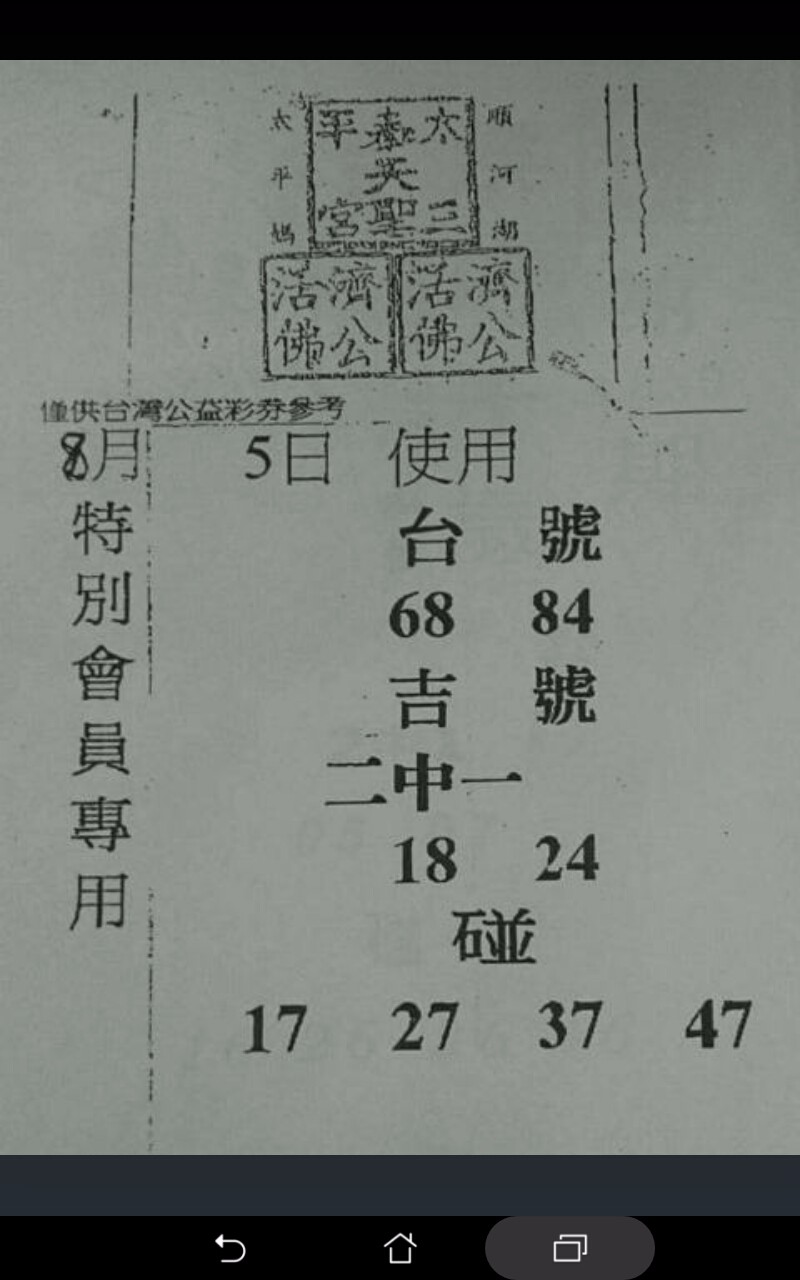 順河湖
太平
三聖宮
太平媽
濟公
活佛
濟公
活佛
僅供台灣公益彩券參考
8月 5日 使用
特別會員專用
台 號
68 84
吉 號
二中一
18 24
碰
17 27 37 47